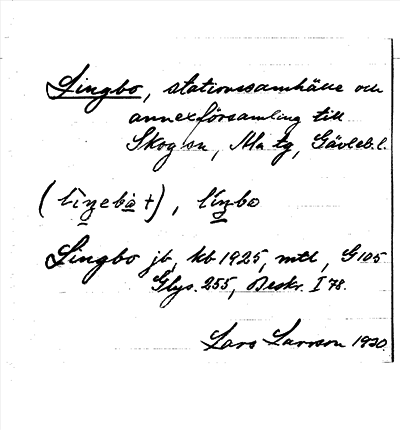 Lingbo, stationssamhälle och
annexförsamling till
Skog sn, Ma tg, Gävleb. l.
(lìŋebà t), líŋbo
Lingbo jb, kb 1925, mtl, G 105
Glys. 255, Beskr. I 78.
Lars Larsson 1930.